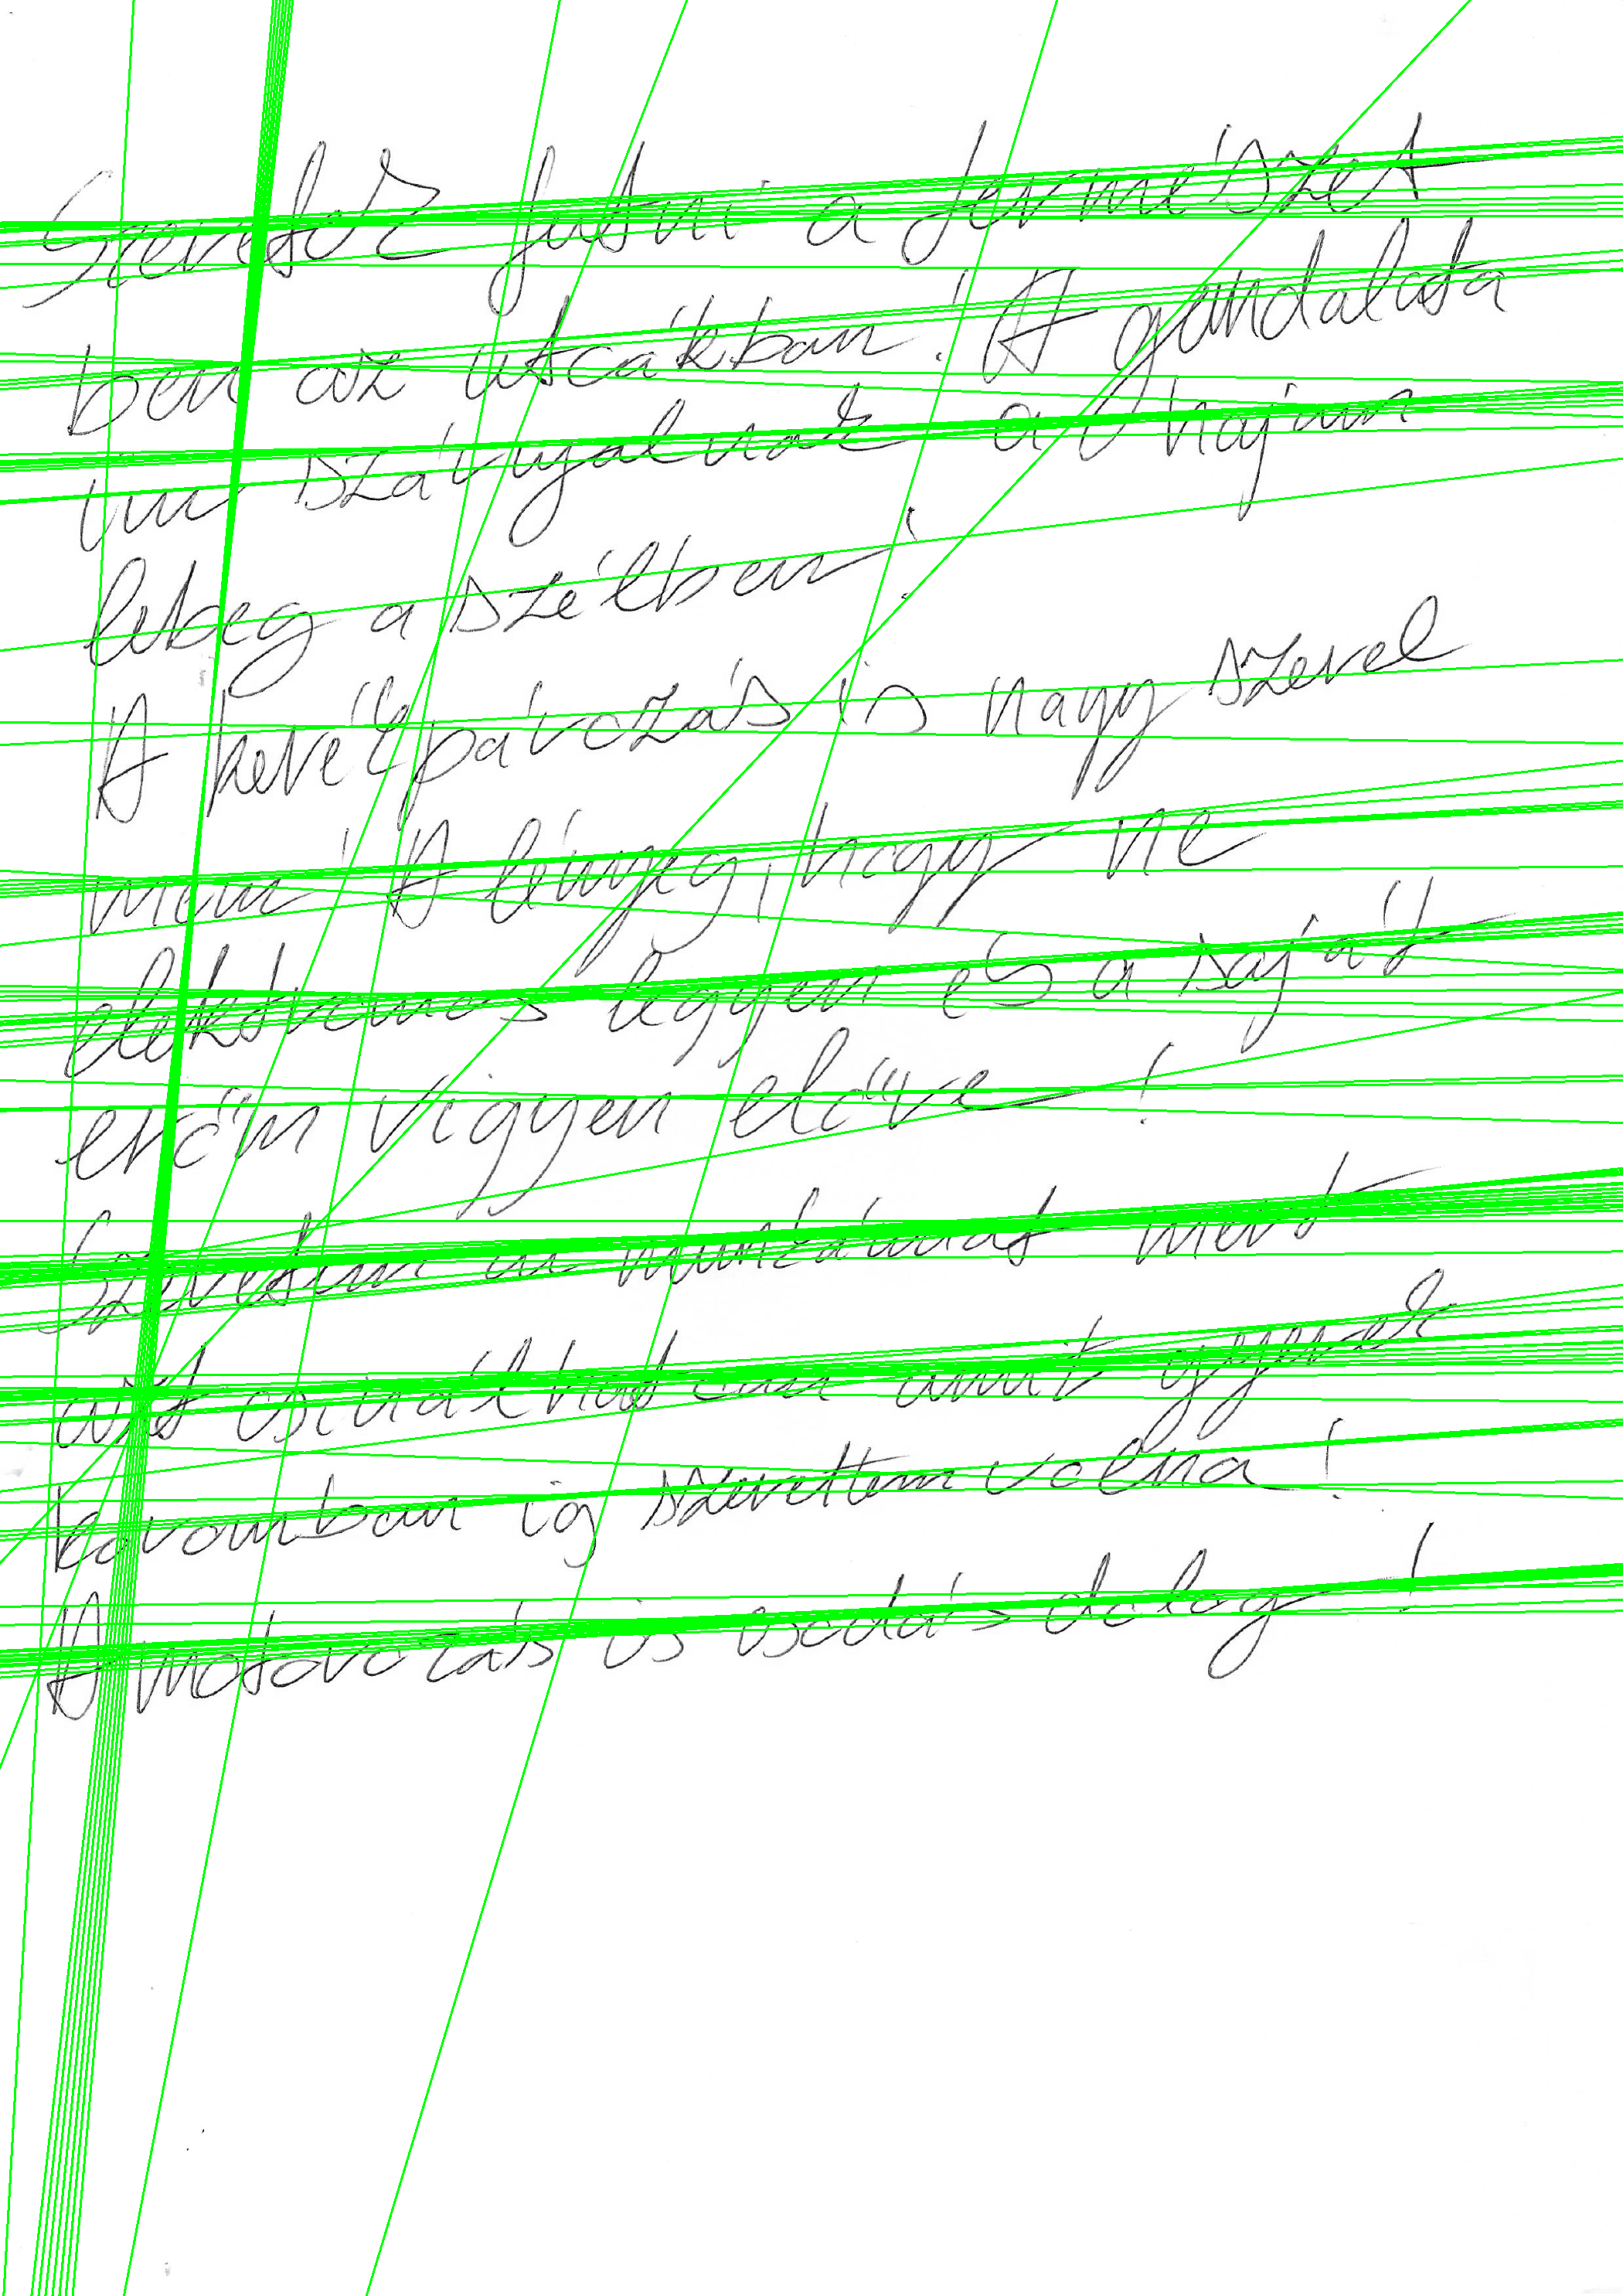 Szeretek futni a természet
ben az utcákban! A gondolata
im szárnyalnak a hajam
lebeg a szélben!
A kerékpározás is nagy szerel
mem! A lényeg, hogy ne
elektromos legyen és a saját
erőm vigyen előre!
Szeretem a munkámat mert
azt csinálhatom amit gyerek
koromban is szerettem volna!
A motorozás is csodás dolog!